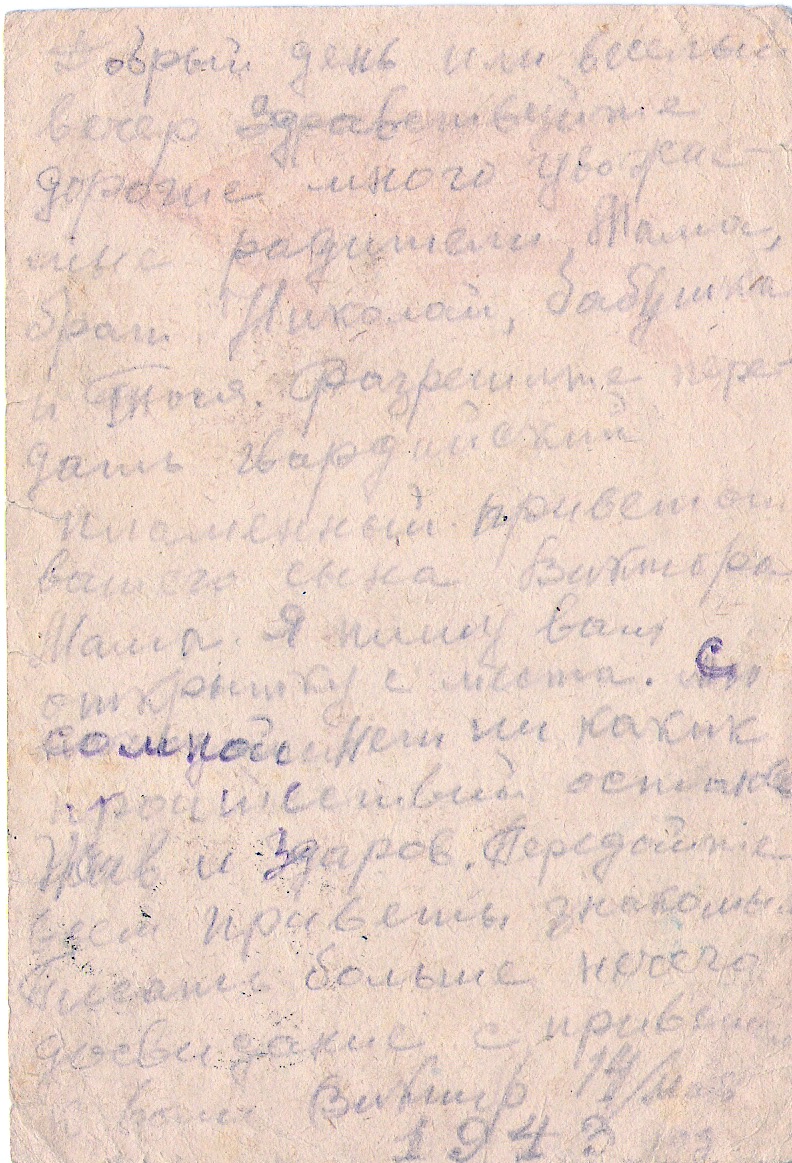 Добрый день или веселый
вечер Здравствуйте
дорогие много уважае-
мые родители, Мама,
брат Николай, бабушка
и Тося. Разрешите пере-
дать гвардийский
пламенный привет от
вашего сына Виктора
Мама. Я пишу вам
открытку с места. С
сомной Нет ни каких
проишествий
Жив и Здаров. Передайте
всем приветы знакомым
Писать больше нечего
досвидание с приветом
к вам Виктор 14/мая
1943 год